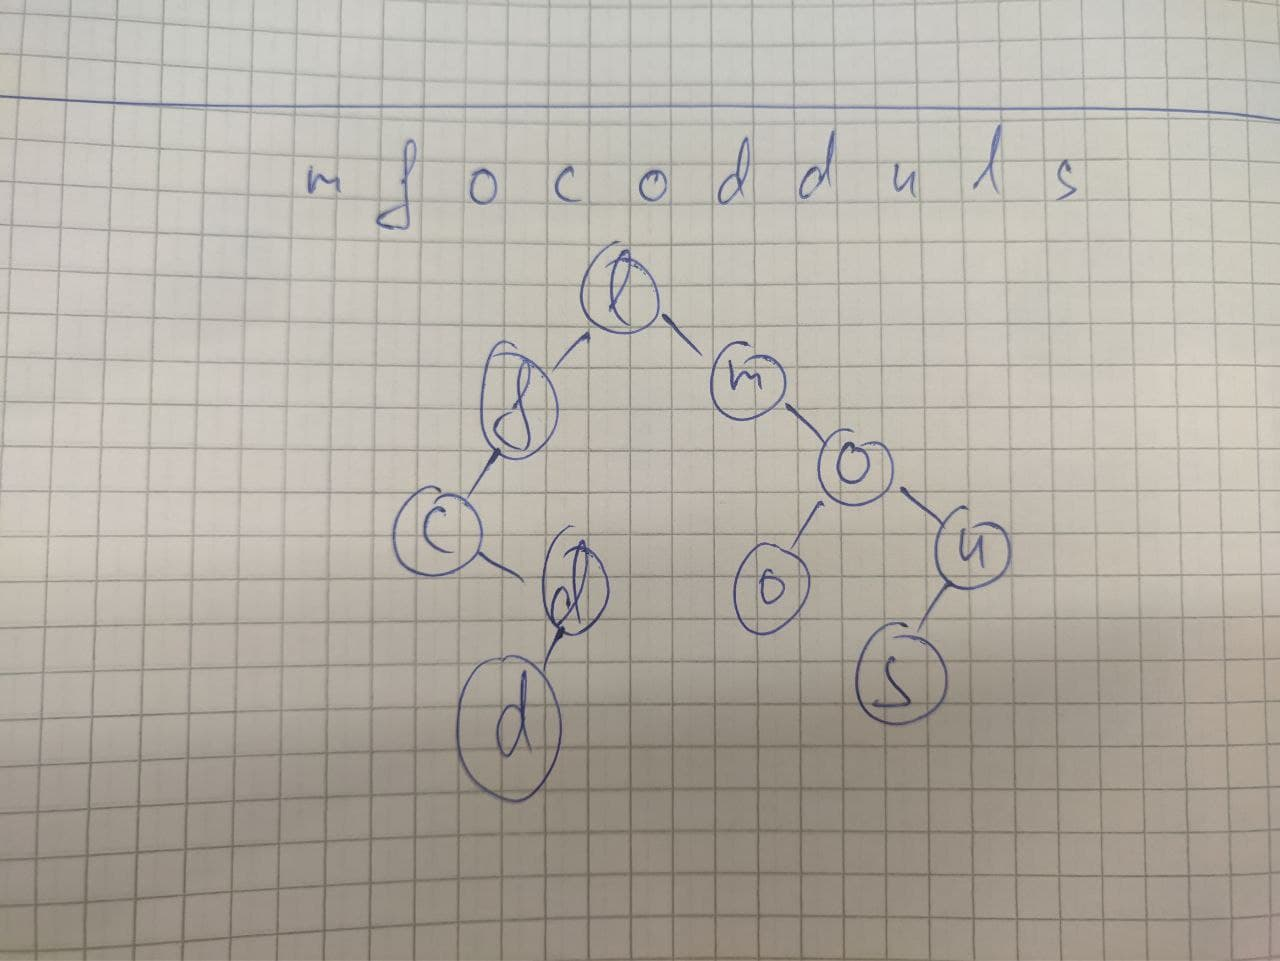 m f o c o d d u l s
l
f m
o
c u
d o
s
d